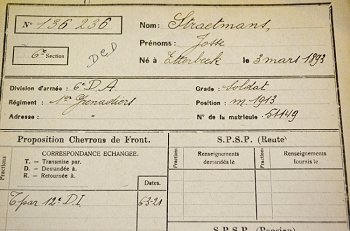 N° 136.236
6e Section
DCD
Nom: Straetmans,
Prénoms: Josse
Né à Etterbeek le 3 mars 1893
Division d'armée: 6e D.A
Régiment: 1er Grenadiers
Adresse: "
Grade: Soldat
Position: m. 1913
N° de la matricule:
Proposition Chevrons de Front.
S.P.S.P. (Route)
Fractions
CORRESPONDANCE ECHANGÉE.
T. — Transmise par
D. — Demandée à
R. — Retournée à
Dates.
Fractions
Renseignements demandés le
Renseignements fournis le
T par 12e D.I. 63-21
S.P.S.P.